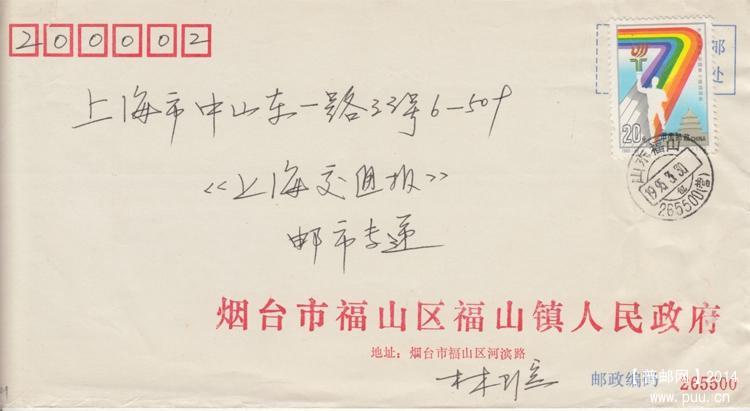 200002
邮
处
20
中国邮政 CHINA
上海市中山东一路33号6-509
山东福山
1995.3.30
265500(营)
《上海交通报》
邮市专递
烟台市福山区福山镇人民政府
地址：烟台市福山区河滨路
林
邮政编码 265500
【普邮网】2014
www.puu.cn